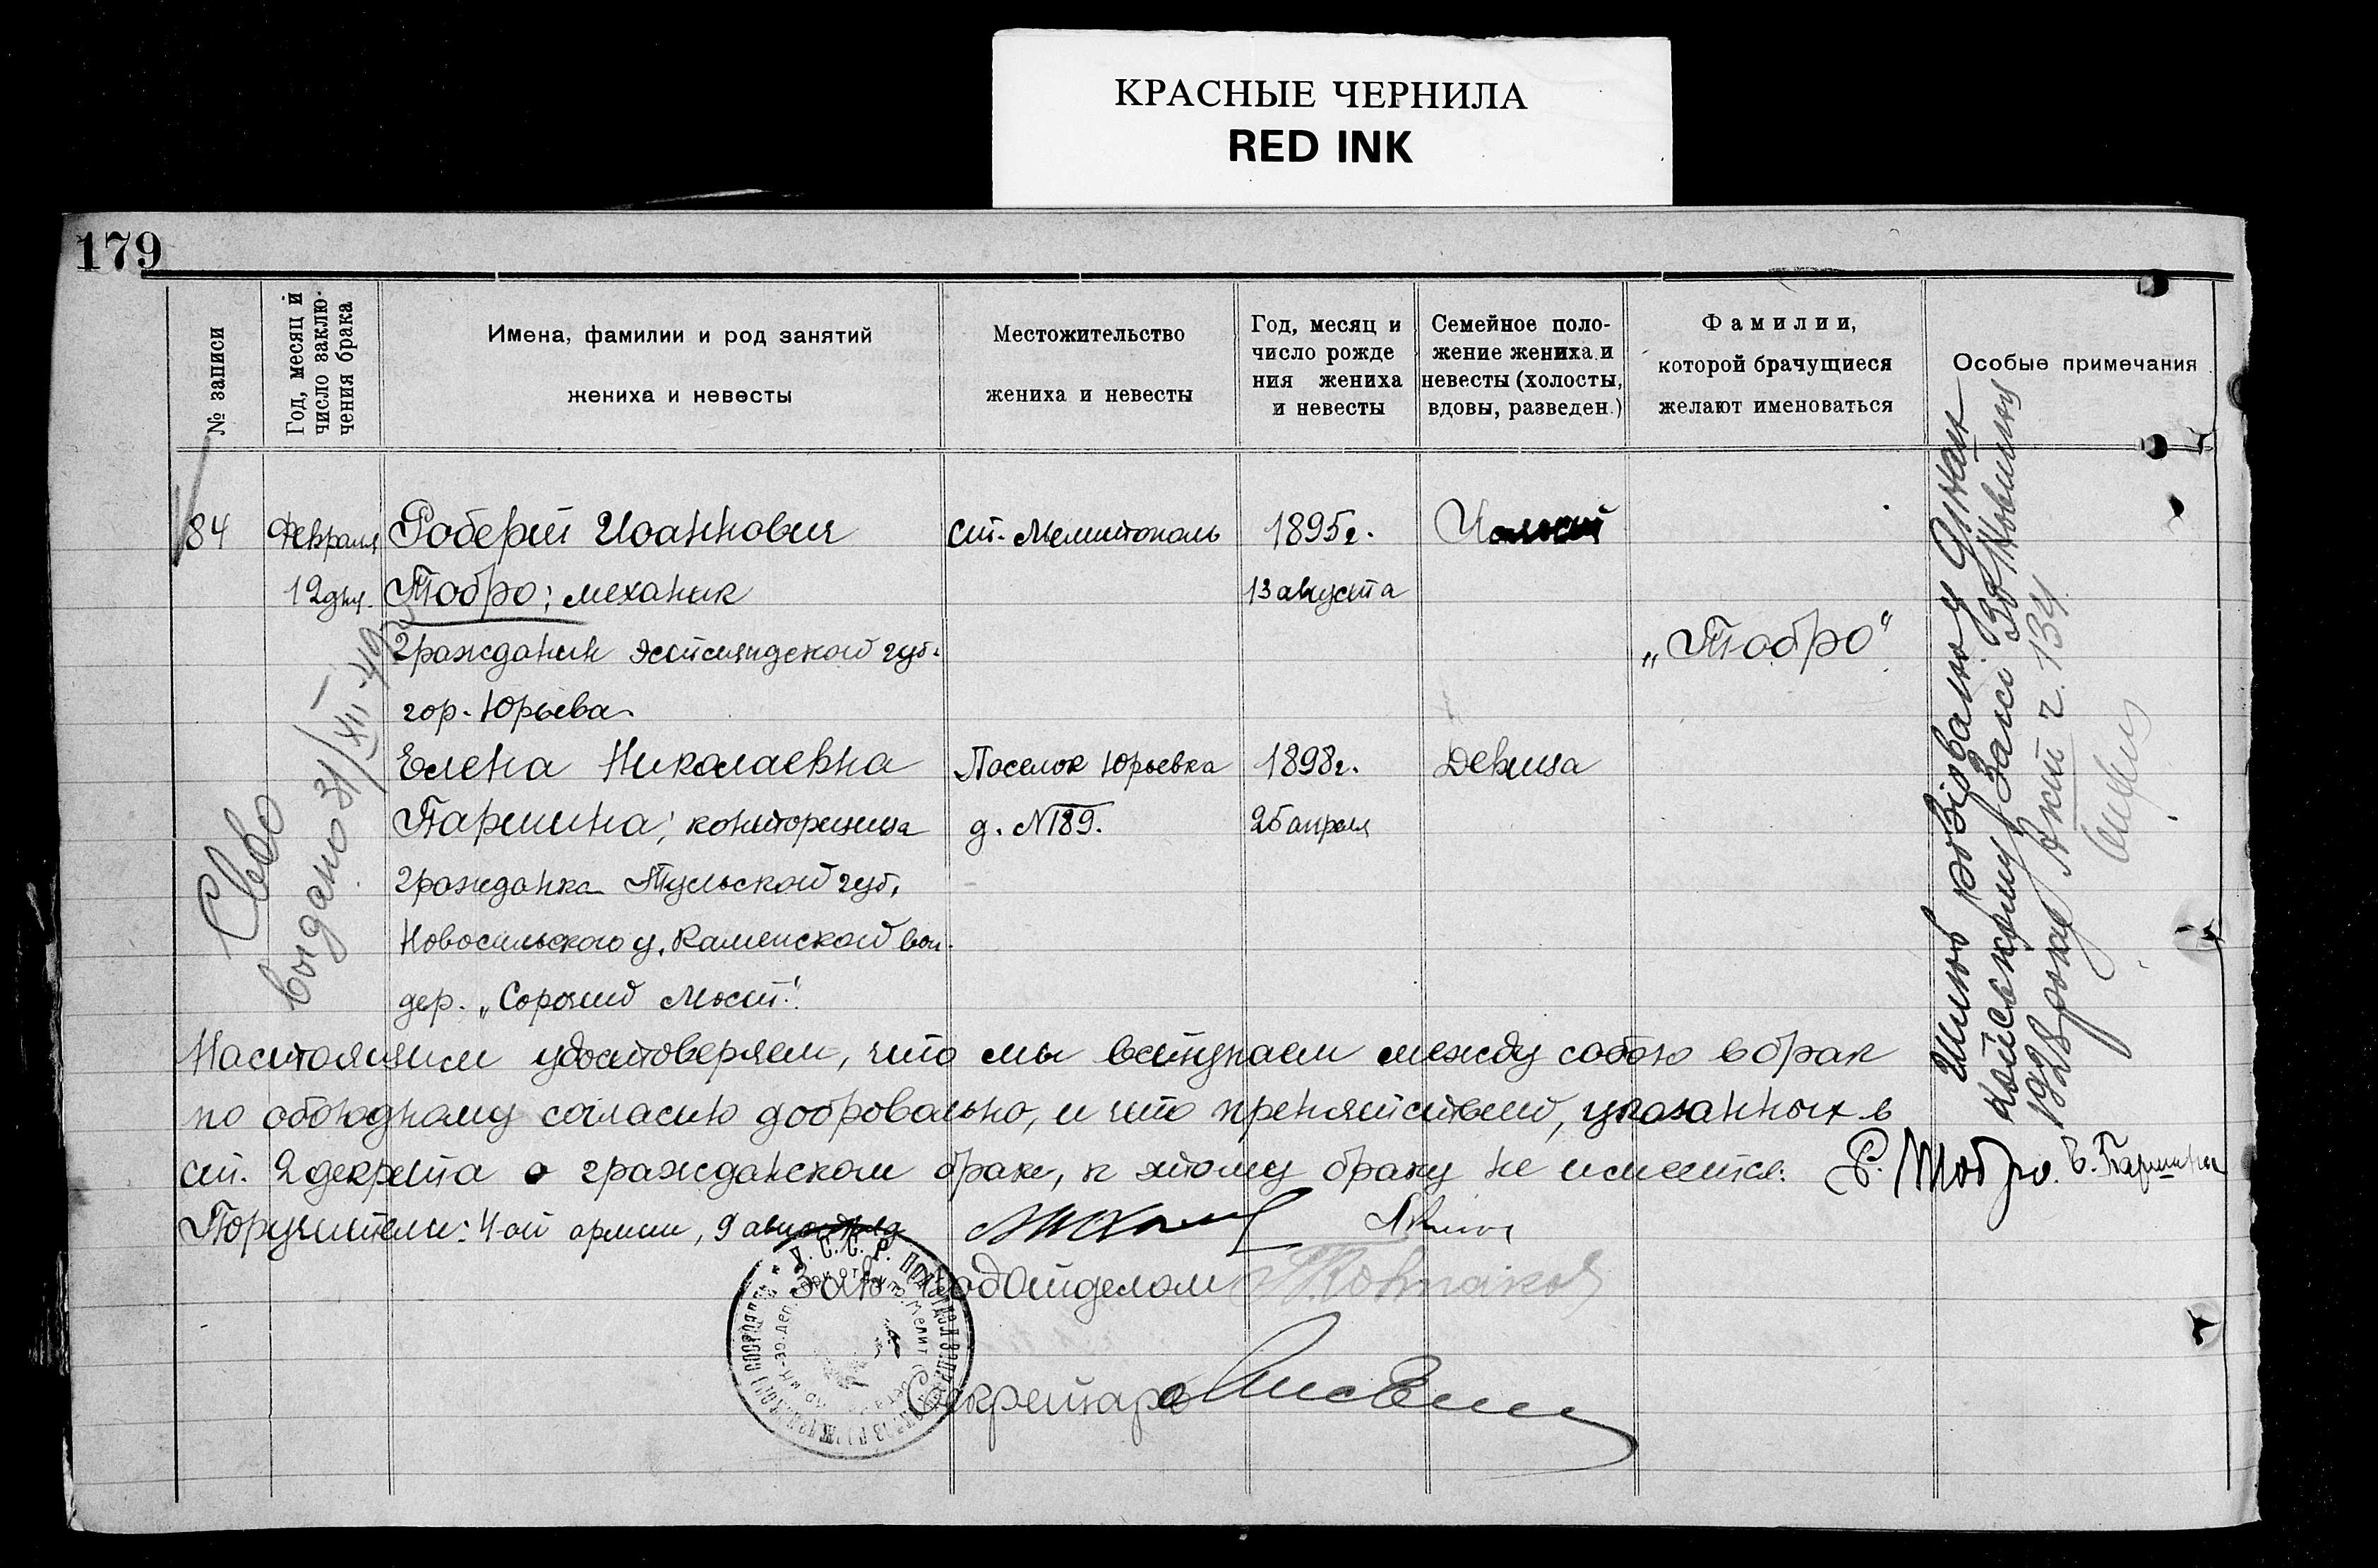 КРАСНЫЕ ЧЕРНИЛА
RED INK
179
№ записи
Год, месяц и
число заклю-
чения брака
Имена, фамилии и род занятий
жениха и невесты
Местожительство
жениха и невесты
Год, месяц и
число рожде
ния жениха
и невесты
Семейное поло-
жение жениха и
невесты (холосты,
вдовы, разведен.)
Фамилии,
которой брачущиеся
желают именоваться
Особые примечания
84
Февраля
12 дня.
Роберт Иоаннович
Тобро; механик
гражданин Эстляндской губ.
гор. Юрьева.
ст. Мелитополь
1895г.
13 августа
„Тобро“
Елена Николаевна
Паршина; конторщица
гражданка Тульской губ.
Новосильского у. Каменской вол.
дер. „Сорочий Мост“.
Поселок Юрьевка
д. №189.
1898г.
25 апреля
Девица
Св-во
выдано 31/XII-40
Шлюб розірвано у
1928 року Акт ч. 134
Настоящим удостоверяем, что мы вступаем между собою в брак
по обоюдному согласию добровольно, и что препятствий, указанных в
ст. 2 декрета о гражданском браке, к этому браку не имеется:
Р. Тобро. Е. Паршина
Поручители: 4ой армии, 9
Зав. Подотделом
Секретарь